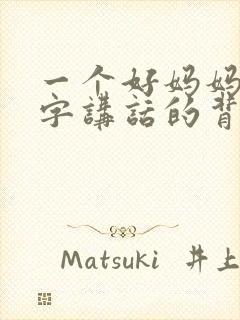 一个好妈妈
字講話的背
Matsuki 井上